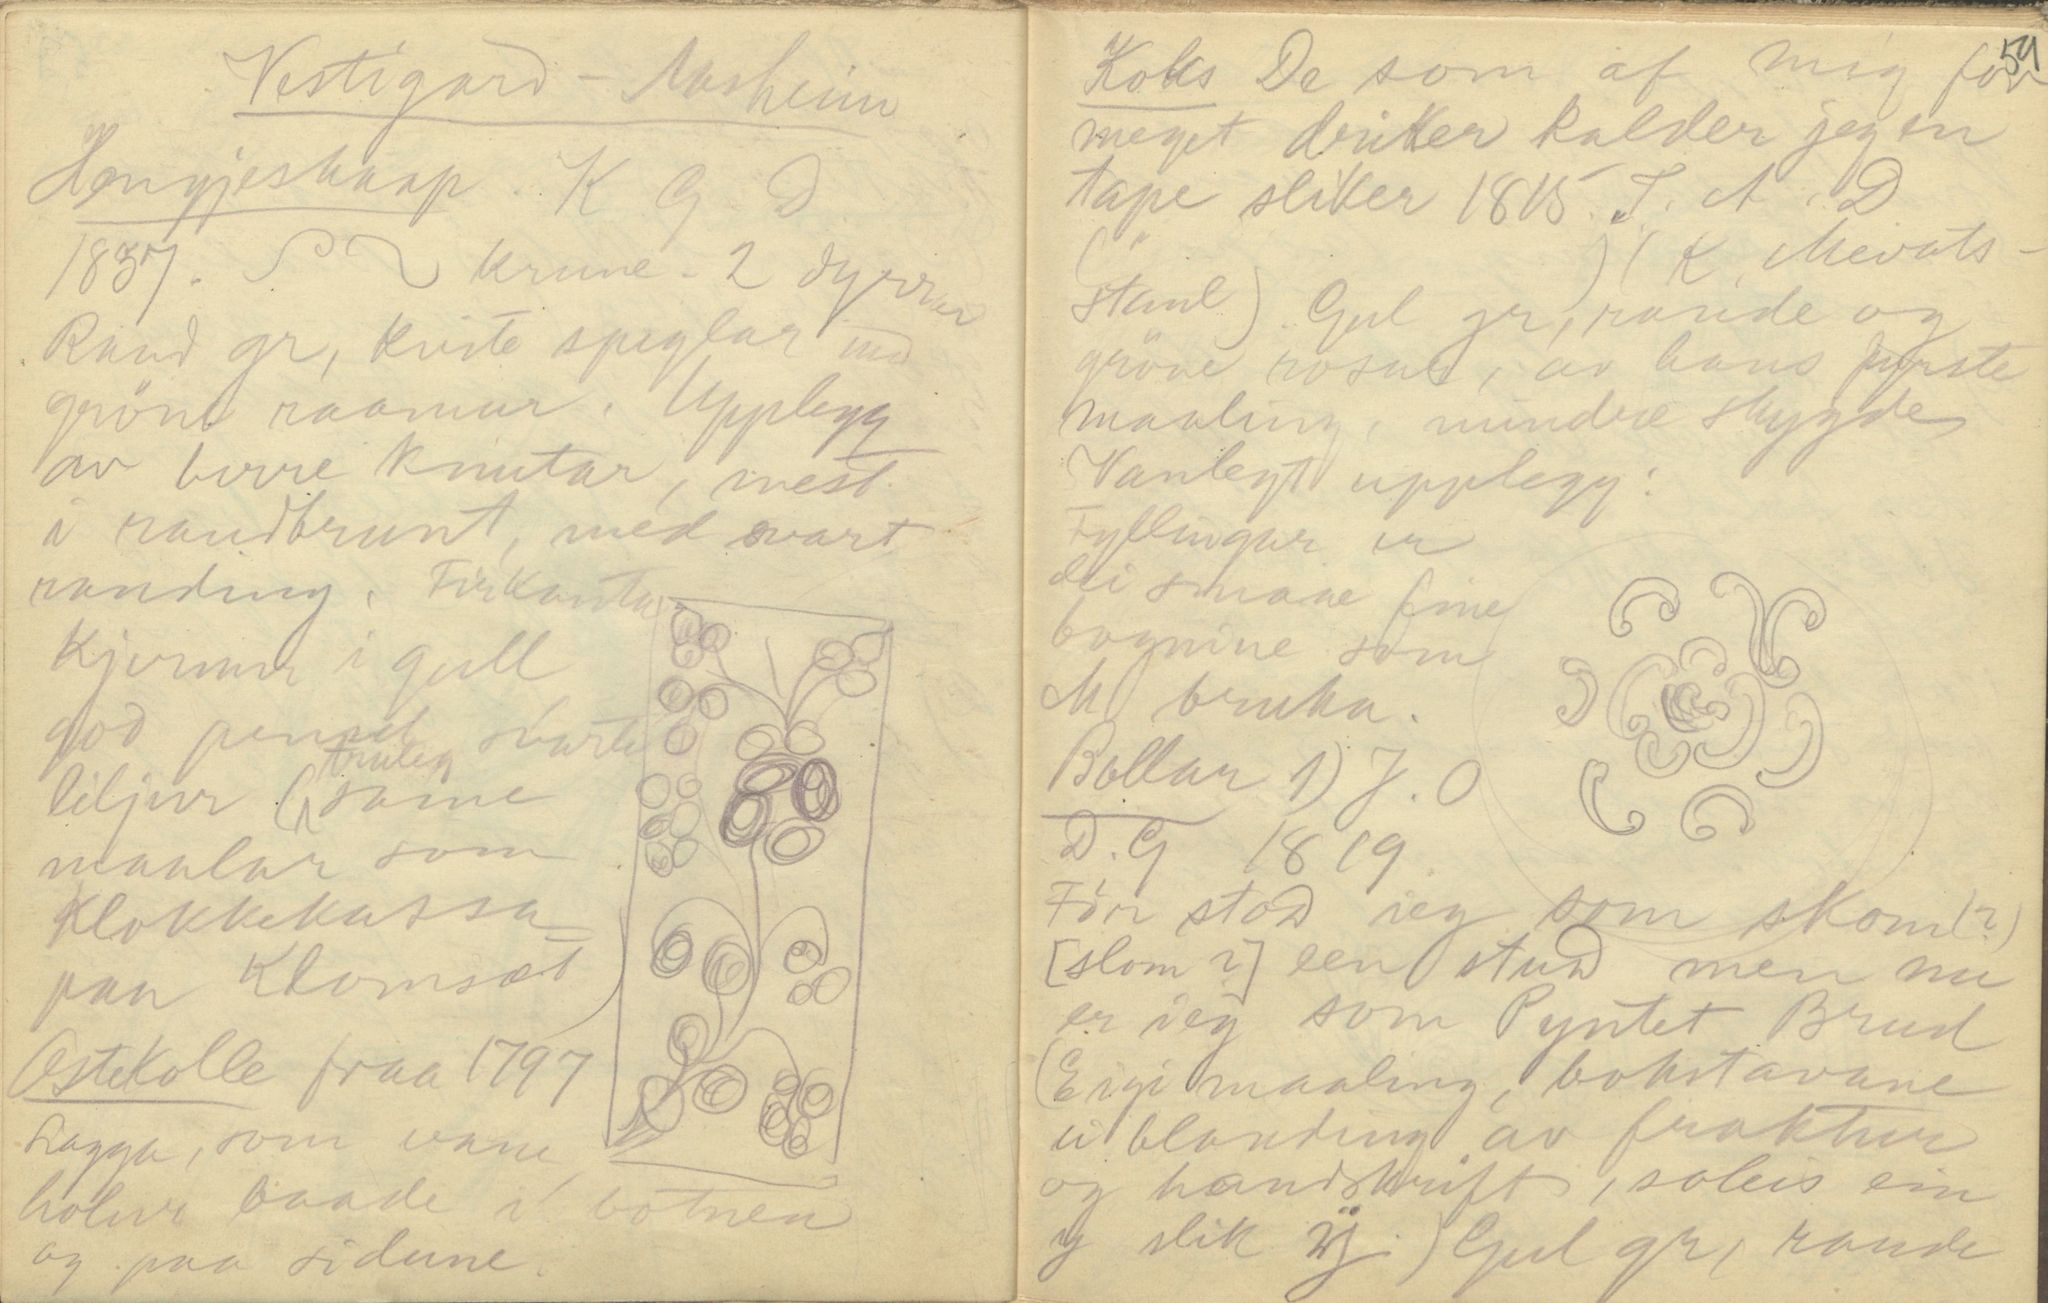 Vestigard - Aasheim
Hengjeskaap. K G D
1837. krune - 2 dyrrar
Raud gr, kvite speglar med
gröne raamur. Upplegg
av berre knutar, mest
i raudbrunt, med svart
randing. Firkanta
Kjernur i gull
god pensel svarte
liljur (truleg same
maalar som
Klokkekassa
paa Klomsæt
Ostekolle fraa 1797
Lagga, som vane
holur baade i botnen
og paa sidune.
59
Koks De som af mig for
meget driker kalder jeg en
tape sliker 1815. T. A. D
( " ) (K. Mevats-
staul) Gul gr, raude og
gröne rosur, av hans fyrste
maaling, mindre skygde
Vanlegt upplegg:
Fyllingar er
dei smaae fine
bognine som
M bruka.
Bollar 1) J. O
D. G 1819
För stod ieg som skom(?)
[slom?] een stud men nu
er ieg som Pyntet Brud
(Eigi maaling, bokstavane
ei blanding av fraktur
og handskrift, soleis ein
y slik ÿ) Gul gr, raude